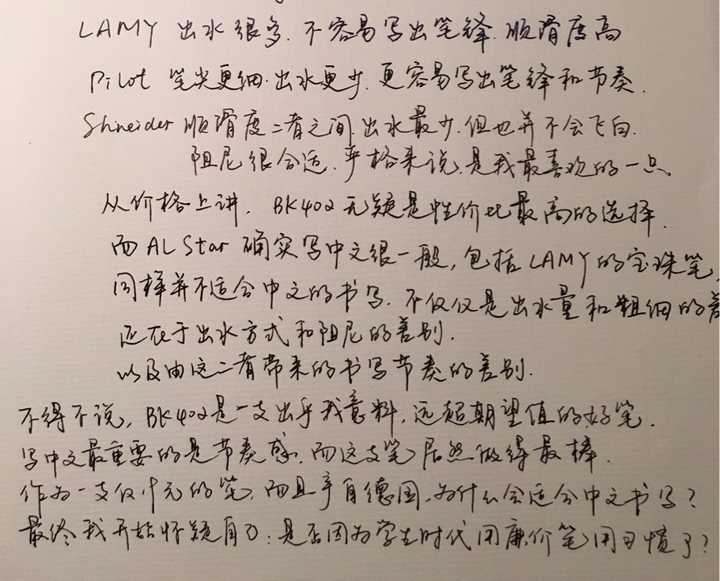 LAMY 出水很多.不容易写出笔锋.顺滑度高
Pilot 笔尖更细.出水更少.更容易写出笔锋和节奏.
Shneider 顺滑度二者之间.出水最少.但也并不会飞白.
阻尼很合适.严格来说.是我最喜欢的一点.
从价格上讲.BK402无疑是性价比最高的选择.
而AL Star 确实写中文很一般,包括LAMY的宝珠笔,
同样并不适合中文的书写.不仅仅是出水量和粗细的差
还在于出水方式和阻尼的差别.
以及由这二者带来的书写节奏的差别.
不得不说,BK402是一支出乎我意料,远超期望值的好笔.
写中文最重要的是节奏感.而这支笔居然做得最棒.
作为一支仅十元的笔,而且产自德国,为什么会适合中文书写?
最终我开始怀疑自己:是否因为学生时代用廉价笔用习惯了?